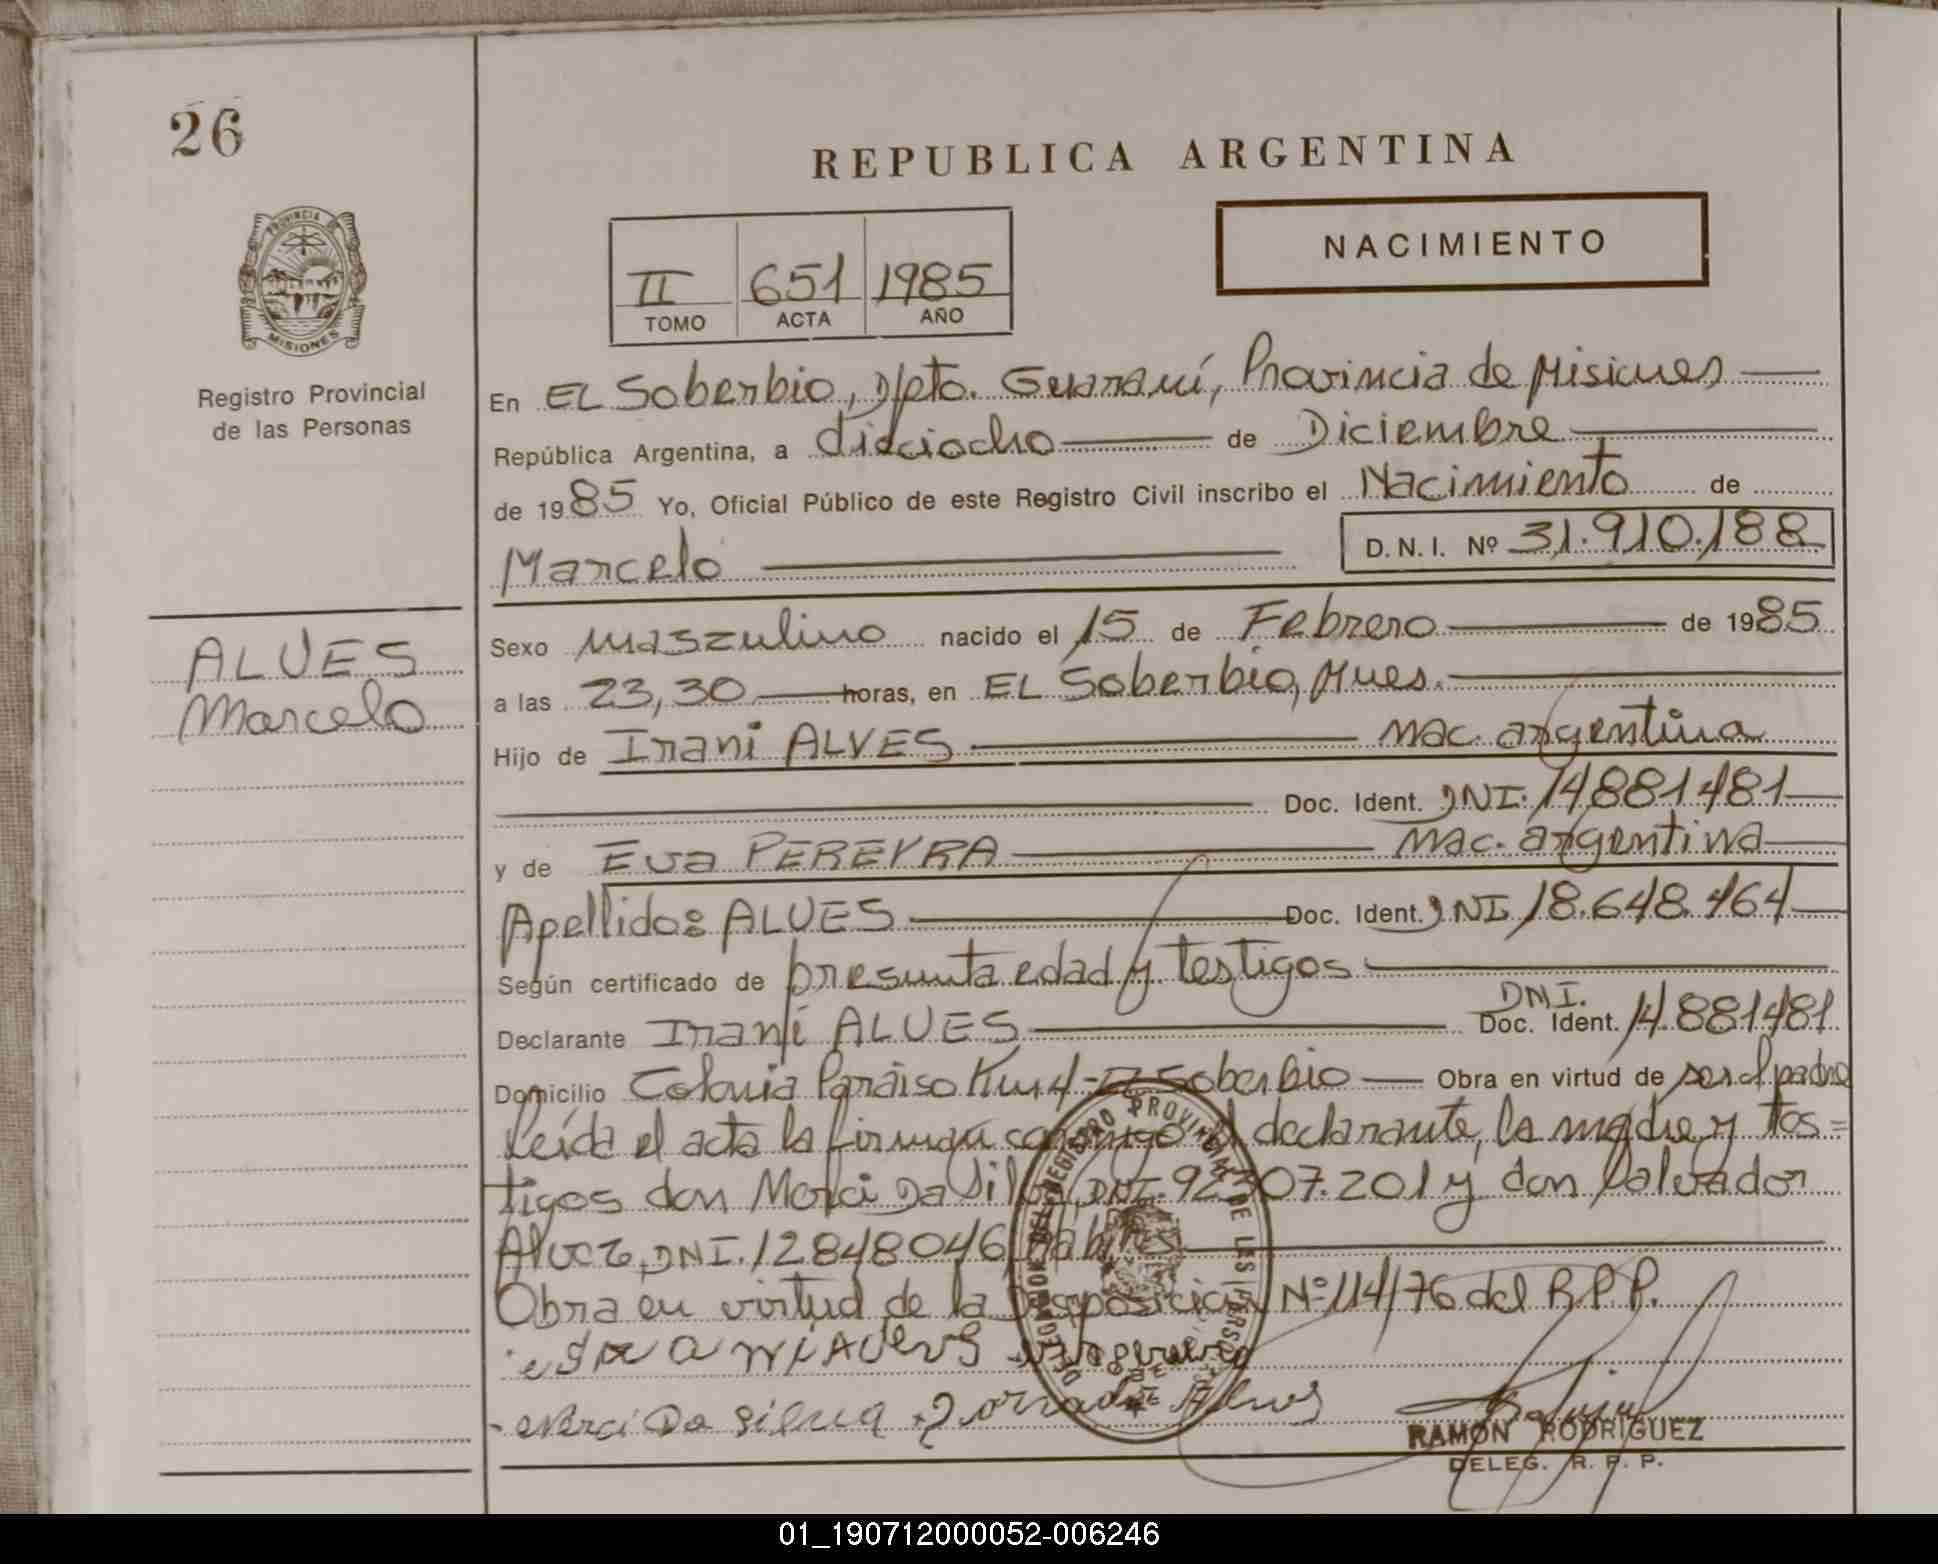 26
REPUBLICA ARGENTINA
NACIMIENTO
II 651 1985
TOMO ACTA AÑO
PROVINCIA DE
MISIONES
Registro Provincial
de las Personas
ALVES
Marcelo
En EL Soberbio, Dpto. Guaraní, Provincia de Misiones
República Argentina, a dieciocho de Diciembre
de 1985 Yo, Oficial Público de este Registro Civil inscribo el Nacimiento de
Marcelo D.N.I. Nº 31.910.188
Sexo masculino nacido el 15 de Febrero de 1985
a las 23,30 horas, en EL Soberbio, Mnes.
Hijo de Irani ALVES nac. argentina
Doc. Ident. DNI. 14881481
y de Eva PEREYRA nac. argentina
Apellido: ALVES Doc. Ident. DNI 18.648.464
Según certificado de presunta edad y testigos
Declarante Irani ALVES DNI. Doc. Ident. 14.881481
Domicilio Colonia Paraiso Km 4 - El Soberbio Obra en virtud de ser el padre
Leída el acta la firman conmigo el declarante, la madre y tes=
tigos don Da Silva, DNI. 92307.201 y don Salvador
DNI. 12848046, hábiles
Obra en virtud de la Disposición Nº 114/76 del R.P.P.
Da Silva
RAMON RODRIGUEZ
DELEG. R. P. P.
DELEGACION DEL REGISTRO PROVINCIAL DE LAS PERSONAS
01_190712000052-006246